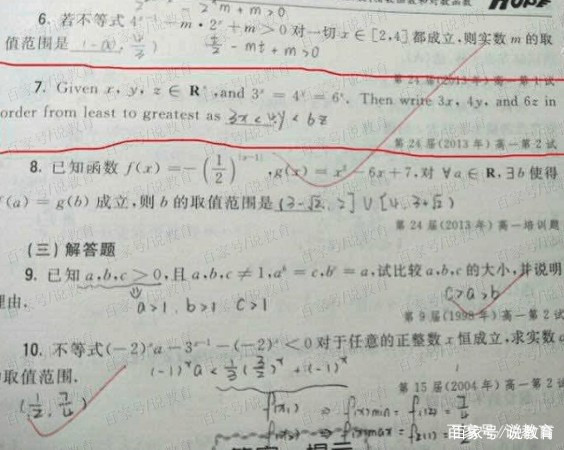 HOPE
2^x m+m>0
6. 若不等式 4^x-m·2^x+m>0 对一切 x∈[2,4]都成立,则实数 m 的取
值范围是
- mt + m>0
第 24 届(2013 年)高一第 1 试
7. Given x, y, z ∈ R^+, and 3^x = 4^y = 6^z. Then write 3x, 4y, and 6z in
order from least to greatest as 3x<4y<6z
第 24 届(2013 年)高一第 2 试
8. 已知函数 f(x)=-(1/2)^{|x-1|} ,g(x)=x²-6x+7,对 ∀a∈R,∃b 使得
f(a)=g(b)成立,则 b 的取值范围是 (3-√2, 2]∪[4, 3+√2)
第 24 届(2013 年)高一培训题
(三)解答题
9. 已知 a,b,c>0,且 a,b,c≠1,a^b=c,b^c=a,试比较 a,b,c 的大小,并说明
理由.
a>1, b>1 c>1
c>a>b
第 9 届(1998 年)高一第 2 试
10. 不等式(-2)^x a-3^{x-1}-(-2)^x<0 对于任意的正整数 x 恒成立,求实数 a
的取值范围.
(-1)^x a < 1/3(3/2)^x + (-1)^x
第 15 届(2004 年)高一第 2 试
(1/2, 7/4)
百家号/说教育